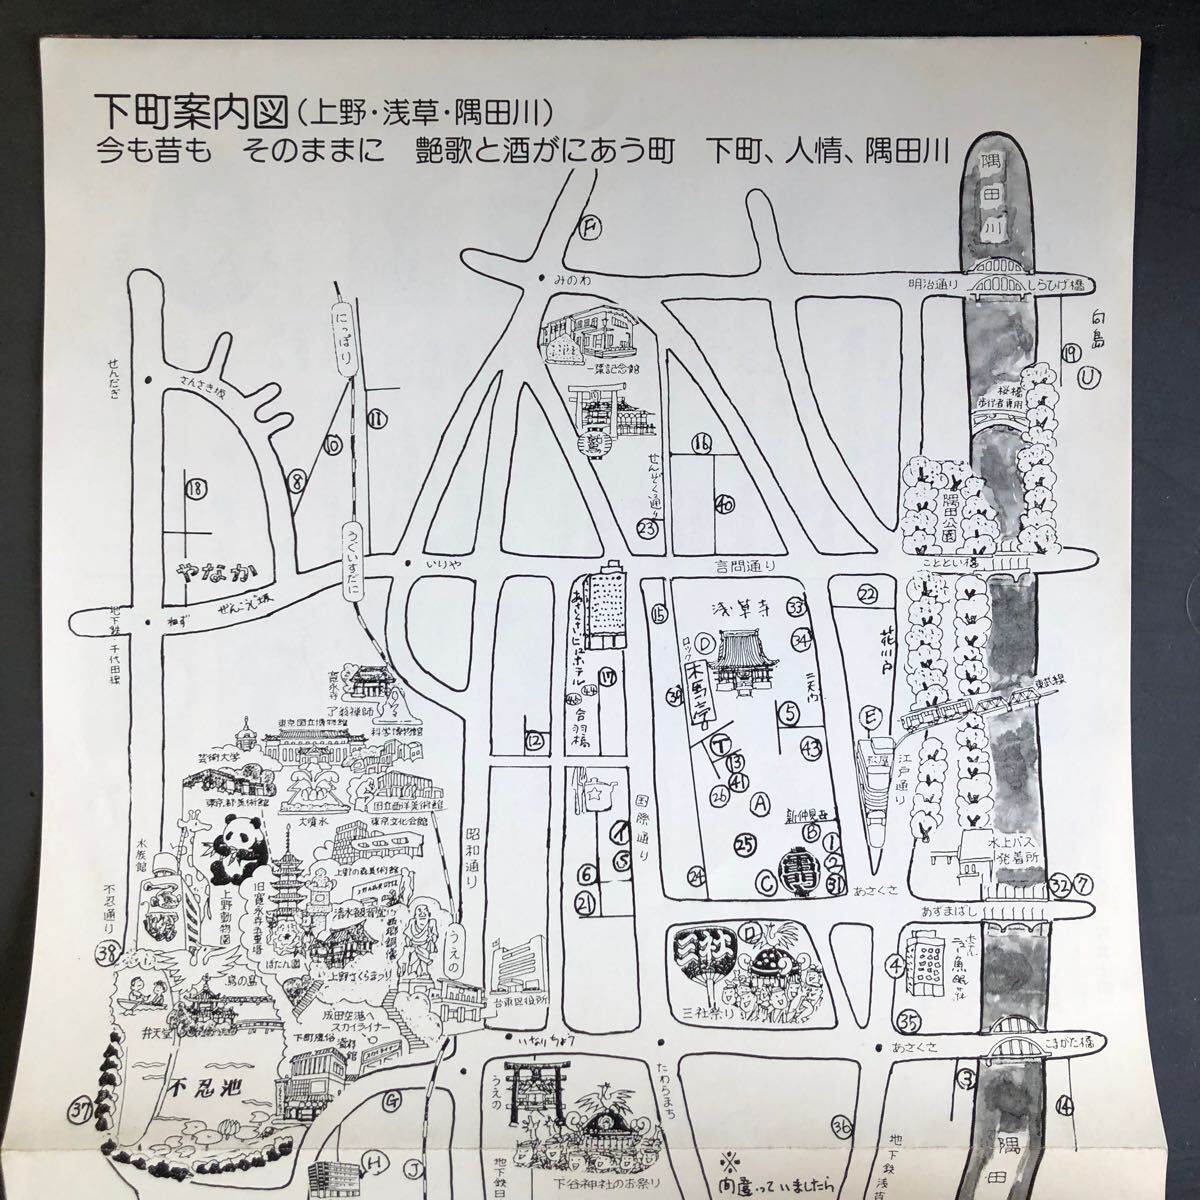 下町案内図(上野・浅草・隅田川)
今も昔も そのままに 艶歌と酒がにあう町 下町、人情、隅田川
隅田川
F
みのわ
明治通り
しらひげ橋
向島
19
U
にっぽり
せんだぎ
さんさき坂
一葉記念館
鷲
桜橋
歩行者専用
11
10
8
18
16
40
せんぞく通り
23
隅田公園
うぐいすだに
やなか
いりや
言問通り
こととい橋
ぜんこうじ坂
ねず
地下鉄・千代田線
あさくさビューホテル
15
浅草寺
33
34
22
花川戸
D
ロック
木馬亭
39
二天門
5
E
東武線
寛永寺
了翁禅師
東京国立博物館
科学博物館
芸術大学
東京都美術館
大噴水
国立西洋美術館
東京文化会館
17
44
合羽橋
12
T
13
41
26
A
43
松屋
江戸通り
昭和通り
国際通り
新仲見世
B
1
2
31
25
C
24
水上バス
発着所
水族館
上野の森美術館
不忍通り
上野動物園
旧寛永寺五重塔
清水観音堂
西郷銅像
6
21
あさくさ
32
7
あずまばし
38
ぼたん園
上野さくらまつり
うえの
台東区役所
三社祭り
4
35
弁天堂
成田空港へ
スカイライナー
下町風俗
資料館
いなりちょう
あさくさ
こまがた橋
不忍池
37
G
うえの
たわらまち
3
14
36
H
J
下谷神社のお祭り
※
間違っていましたら
地下鉄浅草
地下鉄日
隅田